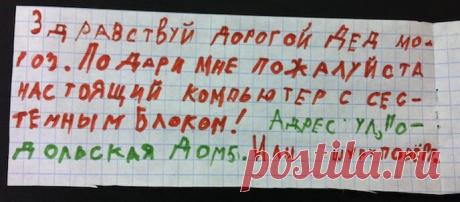 Здравствуй дорогой Дед мо-
роз. Подари мне пожалуйста
настоящий компьютер с сес-
темным блоком! Адрес: ул, По-
дольская дом 5. Или
postila.ru